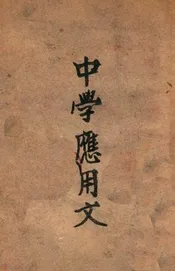 中學應用文